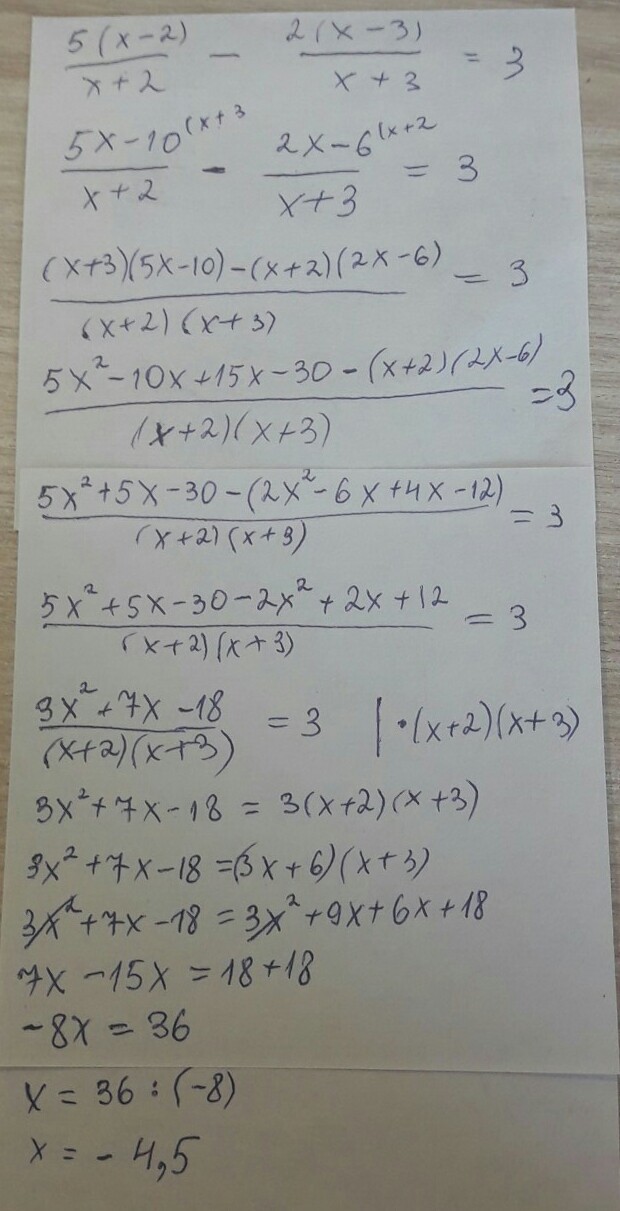 5(x-2)/x+2 - 2(x-3)/x+3 = 3
5x-10^(x+3/x+2 - 2x-6^(x+2/x+3 = 3
(x+3)(5x-10)-(x+2)(2x-6)/(x+2)(x+3) = 3
5x²-10x+15x-30-(x+2)(2x-6)/(x+2)(x+3) = 3
5x²+5x-30-(2x²-6x+4x-12)/(x+2)(x+3) = 3
5x²+5x-30-2x²+2x+12/(x+2)(x+3) = 3
3x²+7x-18/(x+2)(x+3) = 3 | •(x+2)(x+3)
3x²+7x-18 = 3(x+2)(x+3)
3x²+7x-18=(3x+6)(x+3)
3x²+7x-18=3x²+9x+6x+18
7x-15x=18+18
-8x=36
x=36:(-8)
x=-4,5